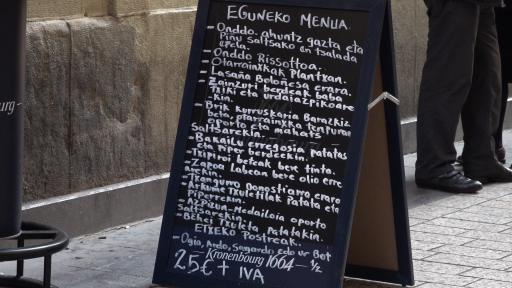 EGUNEKO MENUA.
- Onddo, ahuntz gazta eta
Pinu Saltsako entsalada
epela.
- Onddo Rissottoa.
- Otarrainxkak Plantxan.
- Lasaña Boloñesa erara.
- Zainzuri berdeak baba
txiki eta urdaiazpikoare-
-kin.
- Brik kurruskaria Barazkiz
beta, otarrainxka tenpuran
oporto eta mahats
Saltsarekin.
- Bakailu erregosia patatas
eta piper berdeekin.
- Txipiroi beteak bere tintan.
- Zapoa Labean bere olio erre
arekin.
- Txangurro Donostiarra erara
- Arkume Txuletilak Patata eta
Piperrekin.
- Azpizun-Medailoia oporto
saltsarekin.
- Behei Txuleta patatakin.
ETXEKO Postreak.
- Ogia, Ardo, Sagardo edo ur Bot
Kronenbourg 1664 - 1/2
25€ + IVA
urg